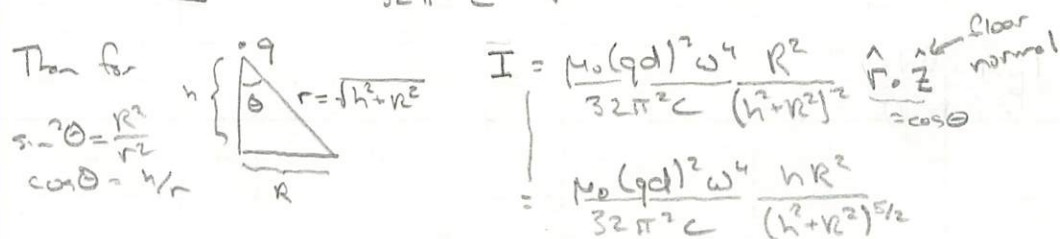 Then for
sin²θ = R²/r²
cosθ = h/r
h
q
θ
r = √h²+R²
R
I = μ₀(qd)²ω⁴/32π²c R²/(h²+R²)² r̂·ẑ
floor normal
= cosθ
= μ₀(qd)²ω⁴/32π²c hR²/(h²+R²)^5/2